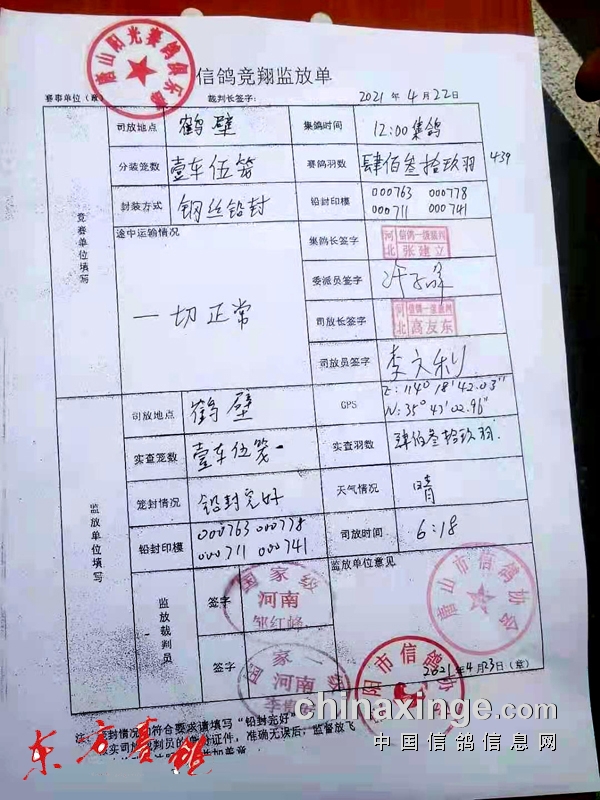 唐山阳光赛鸽俱乐部
信鸽竞翔监放单
赛事单位（章） 裁判长签字： 2021年4月22日
竞赛单位填写
司放地点 鹤壁 集鸽时间 12:00集鸽
分装笼数 壹车伍笼 赛鸽羽数 肆佰叁拾玖羽 439
封装方式 钢丝铅封 铅封印模 000763 000778
000711 000741
途中运输情况 一切正常
集鸽长签字 河北 信鸽一级裁判 张建立
委派员签字
司放长签字 河北 信鸽一级裁判 高友东
司放员签字 李文利
监放单位填写
司放地点 鹤壁 GPS E:114° 18′42.03″
N:35° 43′02.96″
实查笼数 壹车伍笼 实查羽数 肆佰叁拾玖羽.
笼封情况 铅封完好 天气情况 晴
铅封印模 000763 000778
000711 000741
司放时间 6:18
监放裁判员 签字 国家级 河南 邹红峰
签字 国家一级 河南
监放单位意见
唐山市信鸽协会
阳市信鸽协
2021年4月23日（章）
注：笼封情况如符合要求请填写“铅封完好”
实司放裁判员的证件，准确无误后，监督放飞
加盖章
东方赛鸽
chinaxinge.com
中国信鸽信息网